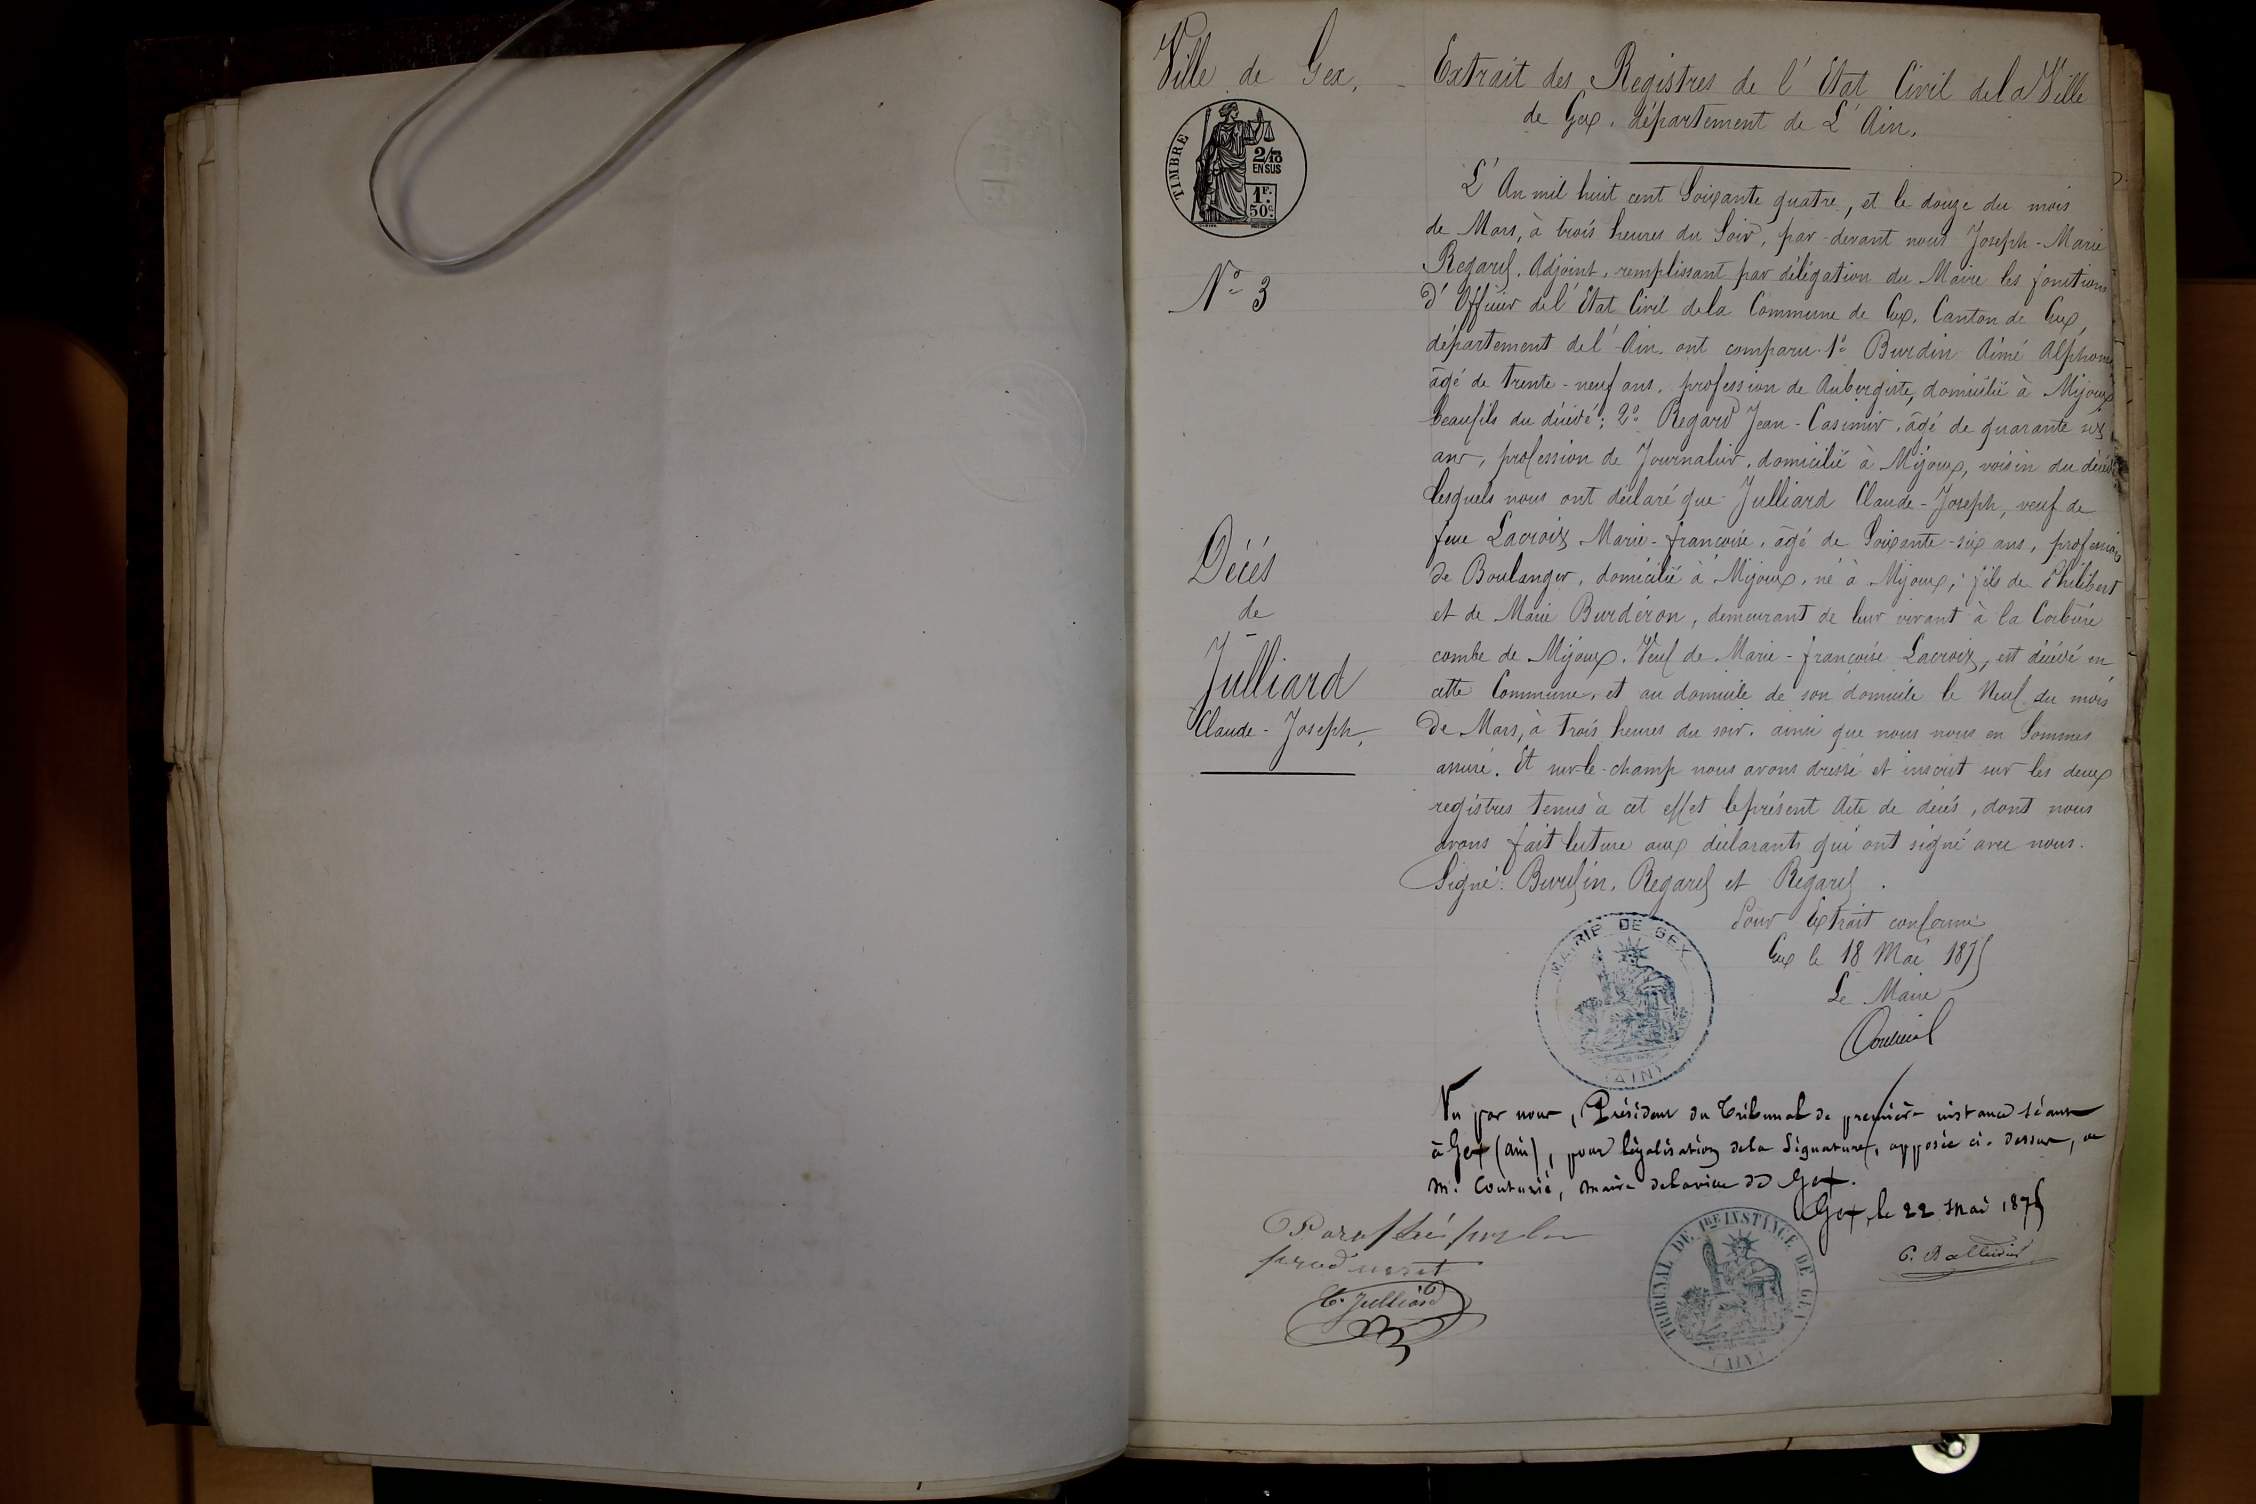 Ville de Gex,
TIMBRE
2/10
EN SUS
1F.
50c.
N° 3
Décès
de
Julliard
Claude-Joseph,
Extrait des Registres de l'Etat Civil de la Ville
de Gex. département de L'Ain.
L'An mil huit cent Soixante quatre, et le douze du mois
de Mars, à trois heures du Soir, par-devant nous Joseph-Marie
Regard. Adjoint, remplissant par délégation du Maire les fonctions
d'Officier de l'Etat Civil de la Commune de Gex, Canton de Gex,
département de l'Ain. ont comparu 1° Burdin Aimé Alphonse
âgé de trente-neuf ans, profession de Aubergiste, domicilié à Mijoux
beaufils du décédé; 2° Regard Jean-Casimir, âgé de quarante six
ans, profession de Journalier, domicilié à Mijoux, voisin du décédé
lesquels nous ont déclaré que Julliard Claude-Joseph, veuf de
feue Lacroix Marie-françoise, âgé de Soixante-six ans, profession
de Boulanger, domicilié à Mijoux, né à Mijoux, fils de Philibert
et de Marie Burdéron, demeurant de leur vivant à la
combe de Mijoux. Veuf de Marie-françoise Lacroix, est décédé en
cette Commune, et au domicile de son domicile le Neuf du mois
de Mars, à trois heures du soir. ainsi que nous nous en Sommes
assuré. Et sur-le-champ nous avons dressé et inscrit sur les deux
registres tenus à cet effet le présent Acte de décès, dont nous
avons fait lecture aux déclarants qui ont signé avec nous.
Signé: Burdin, Regard et Regard.
Pour Extrait conforme
Gex le 18 Mai 1875
Le Maire
MAIRIE DE GEX
(AIN)
Vu par nous, Président du Tribunal de première instance séant
à Gex (ain), pour légalisation de la Signature, apposée ci-dessus, de
M. Couturié, maire de la ville de Gex.
Gex, le 22 mai 1875
Paraphé par le
produisant
C. Julliard
TRIBUNAL DE 1RE INSTANCE DE GEX
(AIN)